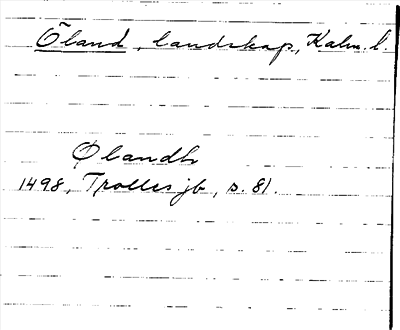 Öland, landskap, Kalm. l.
Ølandh
1498, Trolles jb, s. 81.